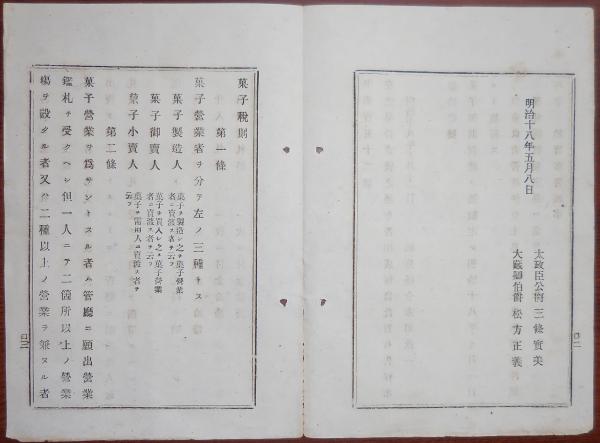 明治十八年五月八日
太政大臣公爵三條實美
大藏卿伯爵松方正義
菓子税則
第一條
菓子營業者ヲ分テ左ノ三種トス
菓子製造人 菓子ヲ製造シ之ヲ菓子營業者ニ賣渡ス者ヲ云フ
菓子卸賣人 菓子ヲ買入レ之ヲ菓子營業者ニ賣渡ス者ヲ云フ
菓子小賣人 菓子ヲ需用人ニ賣渡ス者ヲ云フ
第二條
菓子營業ヲ爲サントスル者ハ管廳ニ願出營業
鑑札ヲ受クヘシ但一人ニテ二箇所以上ノ營業
塲ヲ設クル者又ハ二種以上ノ營業ヲ兼ヌル者